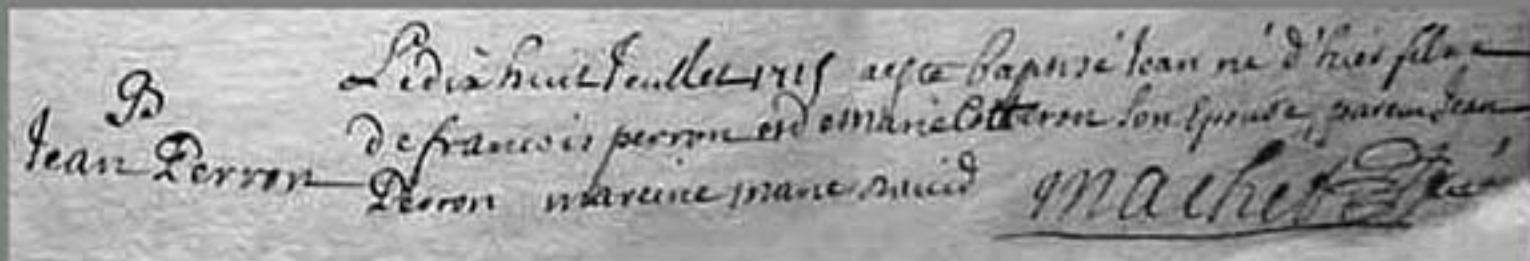 B
Jean Perron
Le dix huit Juillet 1715 a este baptisé Jean né d'hier fils
de francois perron et de marie Cotteron son Epouse, parein Jean
Perron mareine marie
Machet Curé